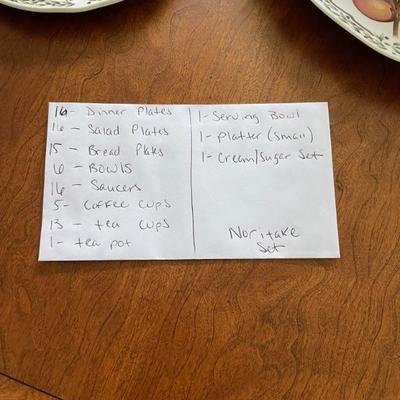 16- Dinner Plates
16- Salad Plates
15- Bread Plates
6- Bowls
16- Saucers
5- Coffee Cups
13- tea Cups
1- tea pot
1- Serving Bowl
1- Platter (small)
1- Cream/Sugar Set
Noritake
Set